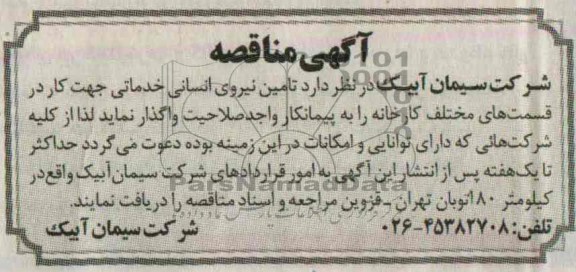 آگهی مناقصه
شرکت سیمان آبیک در نظر دارد تامین نیروی انسانی خدماتی جهت کار در
قسمت‌های مختلف کارخانه را به پیمانکار واجد صلاحیت واگذار نماید لذا از کلیه
شرکت‌هائی که دارای توانایی و امکانات در این زمینه بوده دعوت می گردد حداکثر
تا یک‌هفته پس از انتشار این آگهی به امور قراردادهای شرکت سیمان آبیک واقع در
کیلومتر ۸۰ اتوبان تهران ـ قزوین مراجعه و اسناد مناقصه را دریافت نمایند.
تلفن: ۴۵۳۸۲۷۰۸-۰۲۶ شرکت سیمان آبیک
ParsNamadData